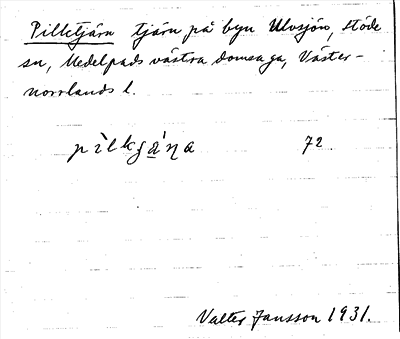 Pilltjärn tjärn på byn Ulvsjön, Stöde
sn, Medelpads västra domsaga, Väster-
norrlands l.
72
Valter Jansson 1931.